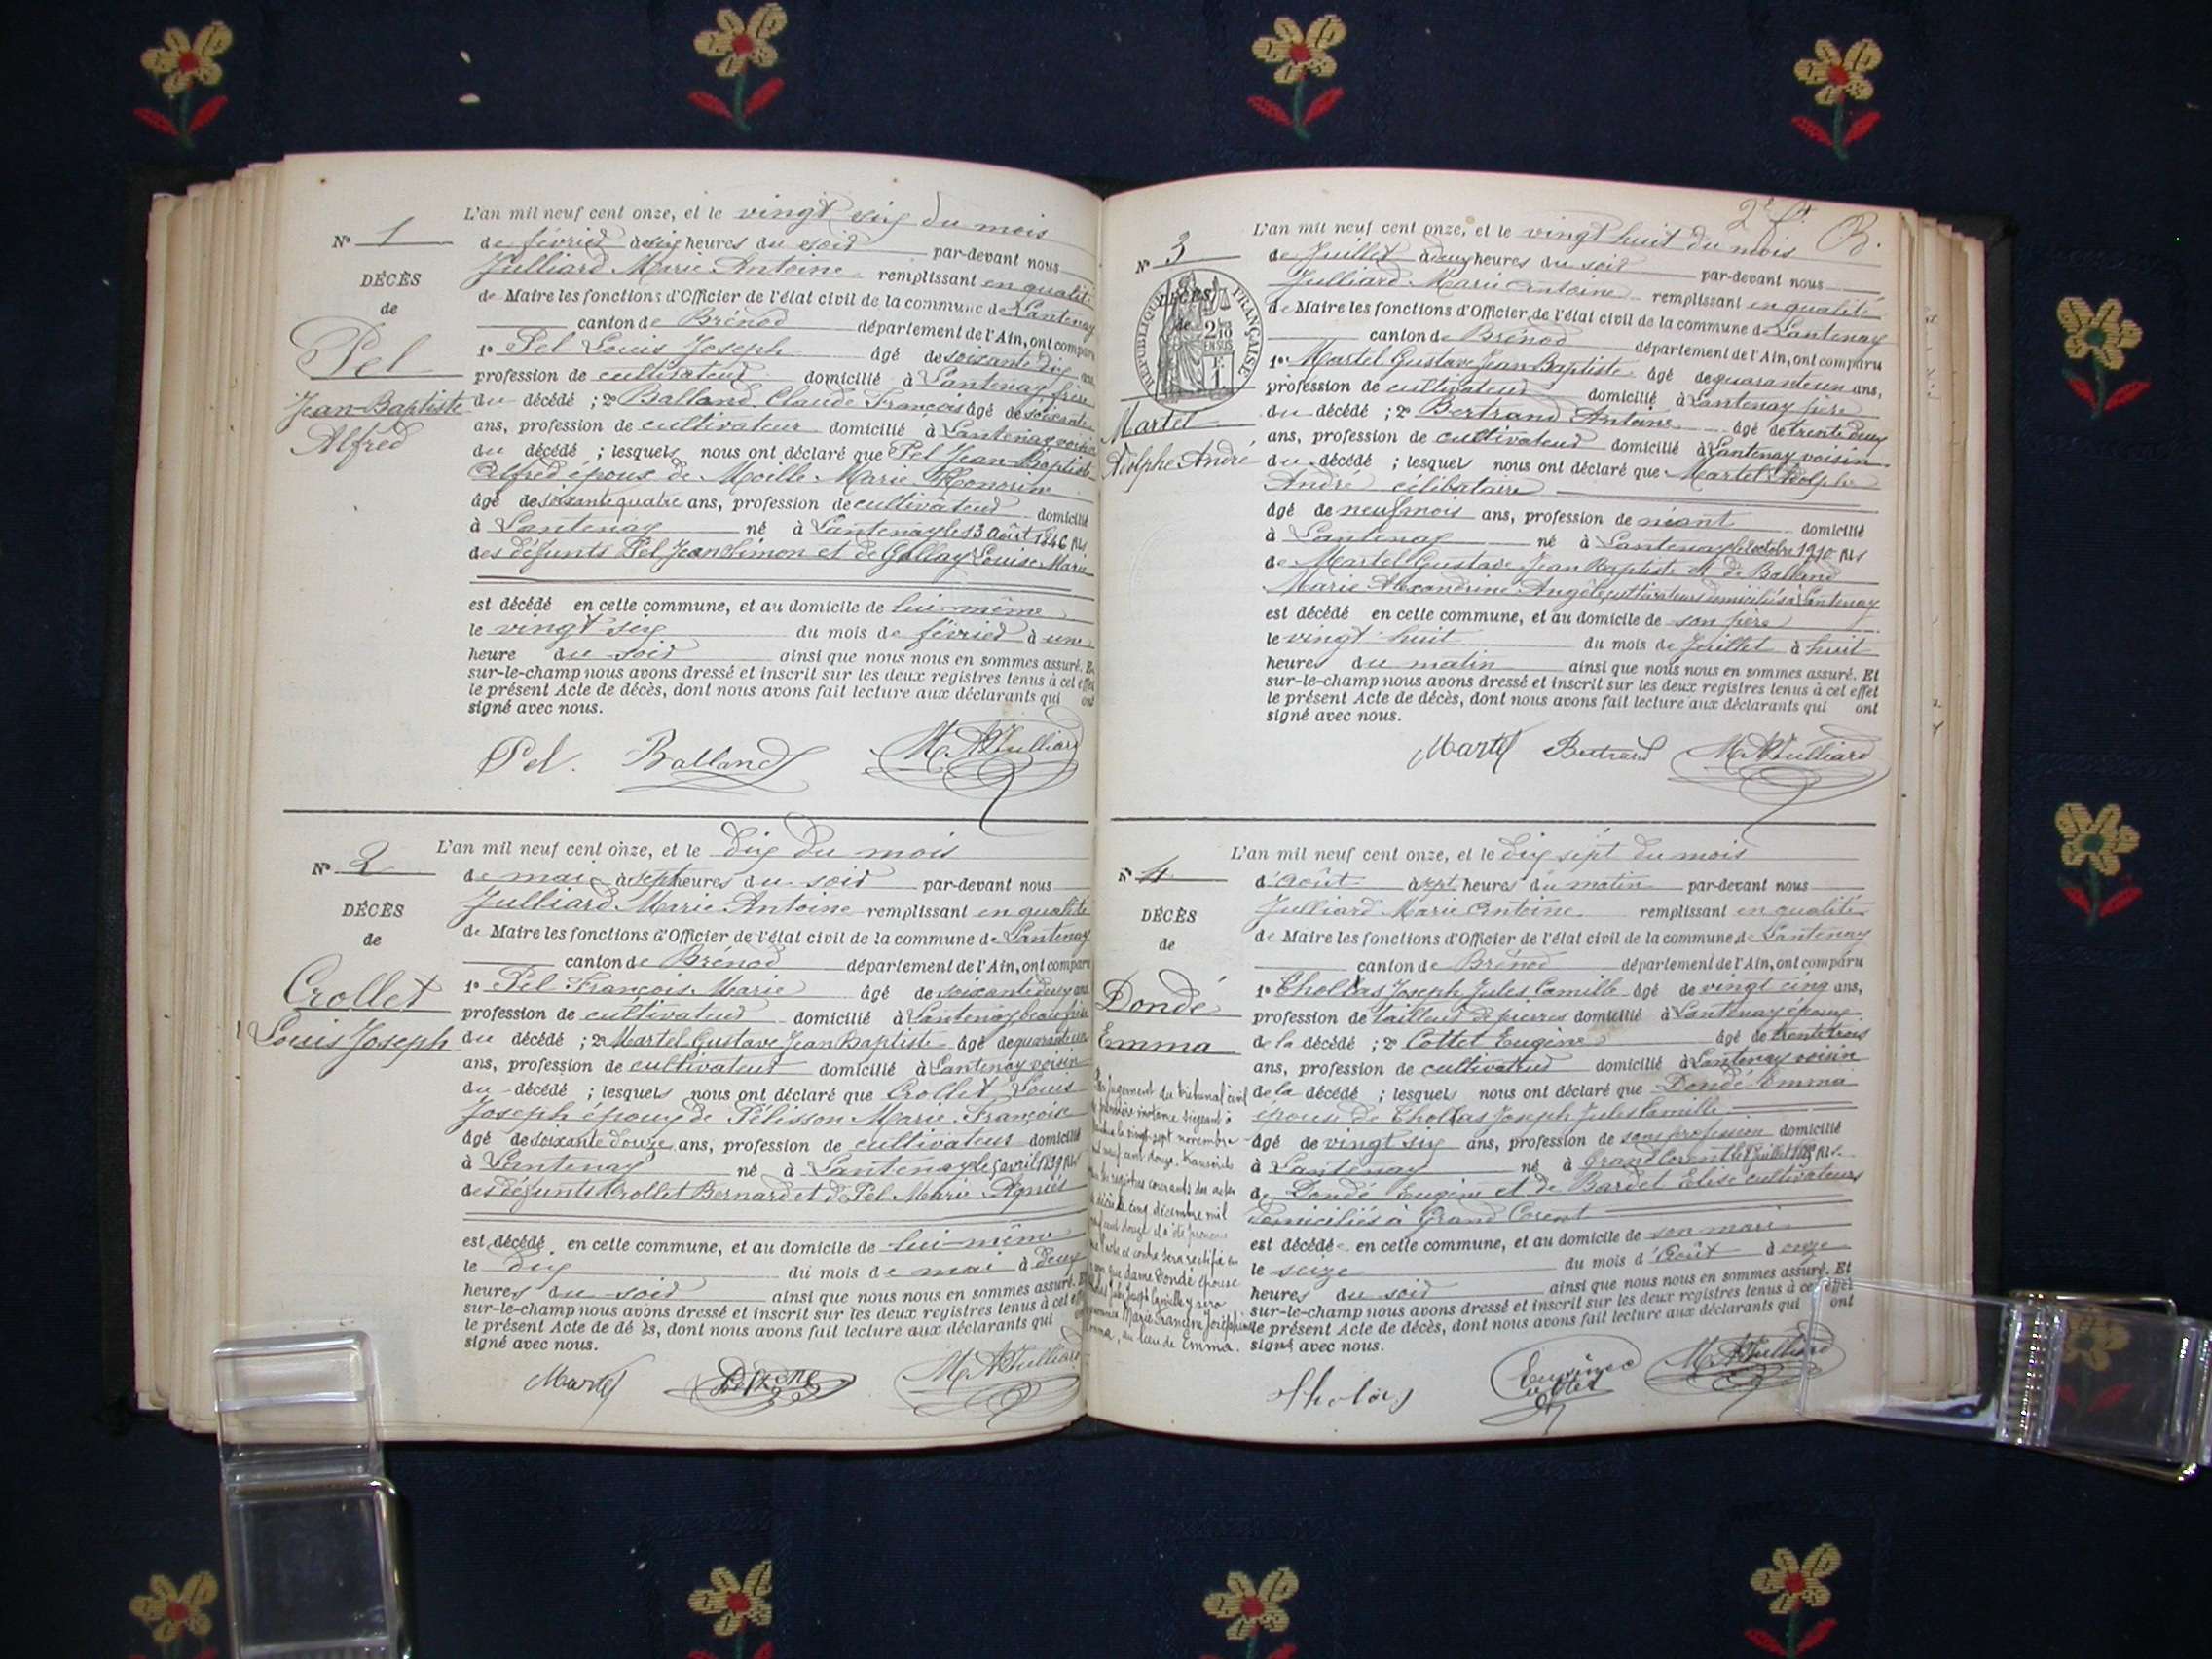 L'an mil neuf cent onze, et le vingt six du mois
N° 1
de février à six heures du soir par-devant nous
DÉCÈS
Julliard Marie Antoine remplissant en qualité
de
de Maire les fonctions d'Officier de l'état civil de la commune de Lantenay
canton de Brénod département de l'Ain, ont comparu
Pel
1° Pel Louis Joseph âgé de soixante dix ans,
profession de cultivateur domicilié à Lantenay, frère
Jean-Baptiste
du décédé ; 2° Balland Claude François âgé de soixante
Alfred
ans, profession de cultivateur domicilié à Lantenay voisin
du décédé ; lesquels nous ont déclaré que Pel Jean-Baptiste
Alfred époux de Moille Marie Honorine
âgé de soixante quatre ans, profession de cultivateur domicilié
à Lantenay né à Lantenay le 13 Août 1846 fils
des défunts Pel Jean Simon et de Gallay Louise Marie
est décédé en cette commune, et au domicile de lui-même
le vingt six du mois de février à une
heure du soir ainsi que nous nous en sommes assuré. Et
sur-le-champ nous avons dressé et inscrit sur les deux registres tenus à cet effet
le présent Acte de décès, dont nous avons fait lecture aux déclarants qui ont
signé avec nous.
Pel. Balland M. A. Julliard
L'an mil neuf cent onze, et le dix du mois
N° 2
de mai à sept heures du soir par-devant nous
DÉCÈS
Julliard Marie Antoine remplissant en qualité
de
de Maire les fonctions d'Officier de l'état civil de la commune de Lantenay
canton de Brénod département de l'Ain, ont comparu
Crollet
1° Pel François Marie âgé de soixante deux ans
profession de cultivateur domicilié à Lantenay beau frère
Louis Joseph
du décédé ; 2° Martel Gustave Jean Baptiste âgé de quarante un
ans, profession de cultivateur domicilié à Lantenay voisin
du décédé ; lesquels nous ont déclaré que Crollet Louis
Joseph époux de Pélisson Marie Françoise
âgé de soixante douze ans, profession de cultivateur domicilié
à Lantenay né à Lantenay le 5 avril 1839 fils
des défunts Crollet Bernard et de Pel Marie Agniès
est décédé en cette commune, et au domicile de lui-même
le dix du mois de mai à deux
heures du soir ainsi que nous nous en sommes assuré. Et
sur-le-champ nous avons dressé et inscrit sur les deux registres tenus à cet effet
le présent Acte de décès, dont nous avons fait lecture aux déclarants qui
signé avec nous.
Martel M. A. Julliard
2e ft
B.
L'an mil neuf cent onze, et le vingt huit du mois
N° 3
de Juillet à deux heures du soir par-devant nous
DÉCÈS
de
RÉPUBLIQUE FRANÇAISE
2/10 EN SUS
1 F.
Julliard Marie Antoine remplissant en qualité
de Maire les fonctions d'Officier de l'état civil de la commune de Lantenay
canton de Brénod département de l'Ain, ont comparu
1° Martel Gustave Jean Baptiste âgé de quarante un ans,
profession de cultivateur domicilié à Lantenay père
Martel
du décédé ; 2° Bertrand Antoine âgé de trente deux
ans, profession de cultivateur domicilié à Lantenay voisin
Adolphe André
du décédé ; lesquels nous ont déclaré que Martel Adolphe
André célibataire
âgé de neuf mois ans, profession de néant domicilié
à Lantenay né à Lantenay le octobre 1910 fils
de Martel Gustave Jean Baptiste et de Balland
Marie Alexandrine Angèle, cultivateurs domiciliés à Lantenay
est décédé en cette commune, et au domicile de son père
le vingt huit du mois de Juillet à huit
heures du matin ainsi que nous nous en sommes assuré. Et
sur-le-champ nous avons dressé et inscrit sur les deux registres tenus à cet effet
le présent Acte de décès, dont nous avons fait lecture aux déclarants qui ont
signé avec nous.
Martel Bertrand M. A. Julliard
L'an mil neuf cent onze, et le dix sept du mois
N° 4
d'Août à sept heures du matin par-devant nous
DÉCÈS
Julliard Marie Antoine remplissant en qualité
de
de Maire les fonctions d'Officier de l'état civil de la commune de Lantenay
canton de Brénod département de l'Ain, ont comparu
Dondé
1° Thollas Joseph Jules Camille âgé de vingt cinq ans,
profession de tailleur de pierres domicilié à Lantenay époux
Emma
de la décédé ; 2° Cottet Eugène âgé de trente trois
ans, profession de cultivateur domicilié à Lantenay voisin
de la décédé ; lesquels nous ont déclaré que Dondé Emma
épouse de Thollas Joseph Jules Camille
âgé de vingt six ans, profession de sans profession domicilié
à Lantenay né à Grand Corent le juillet fils
de Dondé Eugène et de Bardet Elise cultivateurs
domiciliés à Grand Corent
est décédé en cette commune, et au domicile de son mari
le seize du mois d'Août à onze
heures du soir ainsi que nous nous en sommes assuré. Et
sur-le-champ nous avons dressé et inscrit sur les deux registres tenus à cet effet
le présent Acte de décès, dont nous avons fait lecture aux déclarants qui ont
signé avec nous.
jugement du tribunal civil
première instance siégeant à
le vingt-sept novembre
neuf cent douze, transcrit
les registres courants des actes
de décès le cinq décembre mil
neuf cent douze il a été prononcé
que l'acte ci contre sera rectifié en
que dame Dondé épouse
Jules Joseph Camille y sera
prénommée Marie Françoise Joséphine
Emma, au lieu de Emma.
Tholas Eugène Cottet M. A. Julliard